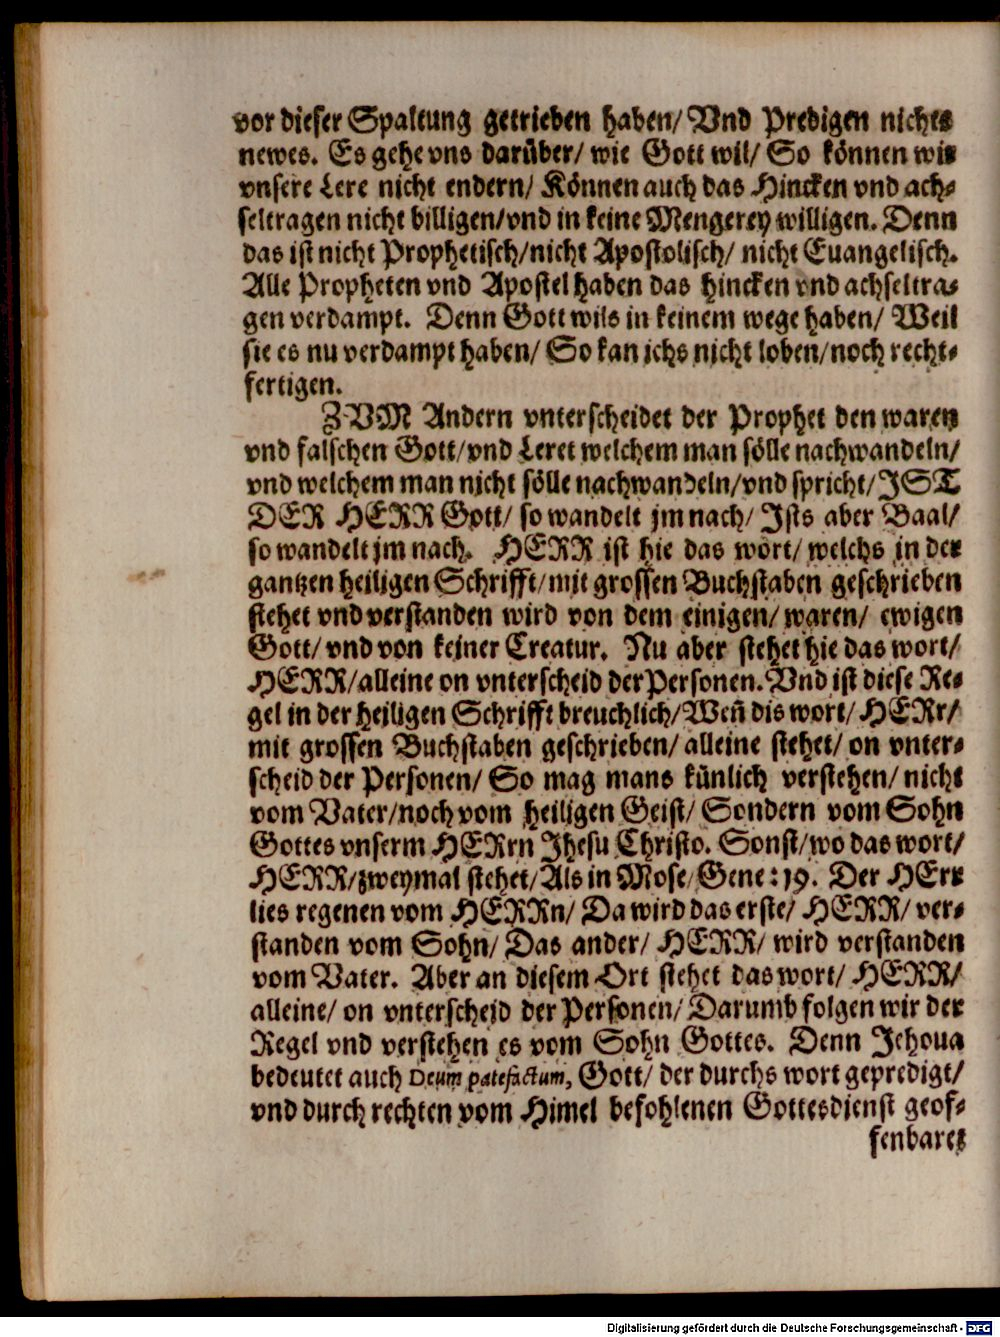 vor dieser Spaltung getrieben haben/ Vnd Predigen nichts
newes. Es gehe vns darüber/ wie Gott wil/ So können wir
vnsere Lere nicht endern/ Können auch das Hincken vnd ach-
seltragen nicht billigen/vnd in keine Mengerey willigen. Denn
das ist nicht Prophetisch/nicht Apostolisch/ nicht Euangelisch.
Alle Propheten vnd Apostel haben das hincken vnd achseltra-
gen verdampt. Denn Gott wils in keinem wege haben/ Weil
sie es nu verdampt haben/ So kan ichs nicht loben/noch recht-
fertigen.
ZVM Andern vnterscheidet der Prophet den waren
vnd falschen Gott/vnd Leret welchem man sölle nachwandeln/
vnd welchem man nicht sölle nachwandeln/vnd spricht/ JST
DER HERR Gott/ so wandelt jm nach/ Ists aber Baal/
so wandelt jm nach. HERR ist hie das wort/ welchs in der
gantzen heiligen Schrifft/mit grossen Buchstaben geschrieben
stehet vnd verstanden wird von dem einigen/ waren/ ewigen
Gott/ vnd von keiner Creatur. Nu aber stehet hie das wort/
HERR/alleine on vnterscheid der Personen. Vnd ist diese Re-
gel in der heiligen Schrifft breuchlich/ Weñ dis wort/ HERr/
mit grossen Buchstaben geschrieben/ alleine stehet/ on vnter-
scheid der Personen/ So mag mans künlich verstehen/ nicht
vom Vater/noch vom heiligen Geist/ Sondern vom Sohn
Gottes vnserm HERrn Jhesu Christo. Sonst/wo das wort/
HERR/zweymal stehet/Als in Mose/ Gene: 19. Der HErr
lies regenen vom HERRn/ Da wird das erste/ HERR/ ver-
standen vom Sohn/ Das ander/ HERR/ wird verstanden
vom Vater. Aber an diesem Ort stehet das wort/ HERR/
alleine/ on vnterscheid der Personen/ Darumb folgen wir der
Regel vnd verstehen es vom Sohn Gottes. Denn Jehoua
bedeutet auch Deum patefactum, Gott/ der durchs wort gepredigt/
vnd durch rechten vom Himel befohlenen Gottesdienst geof-
fenbaret
Digitalisierung gefördert durch die Deutsche Forschungsgemeinschaft - DFG